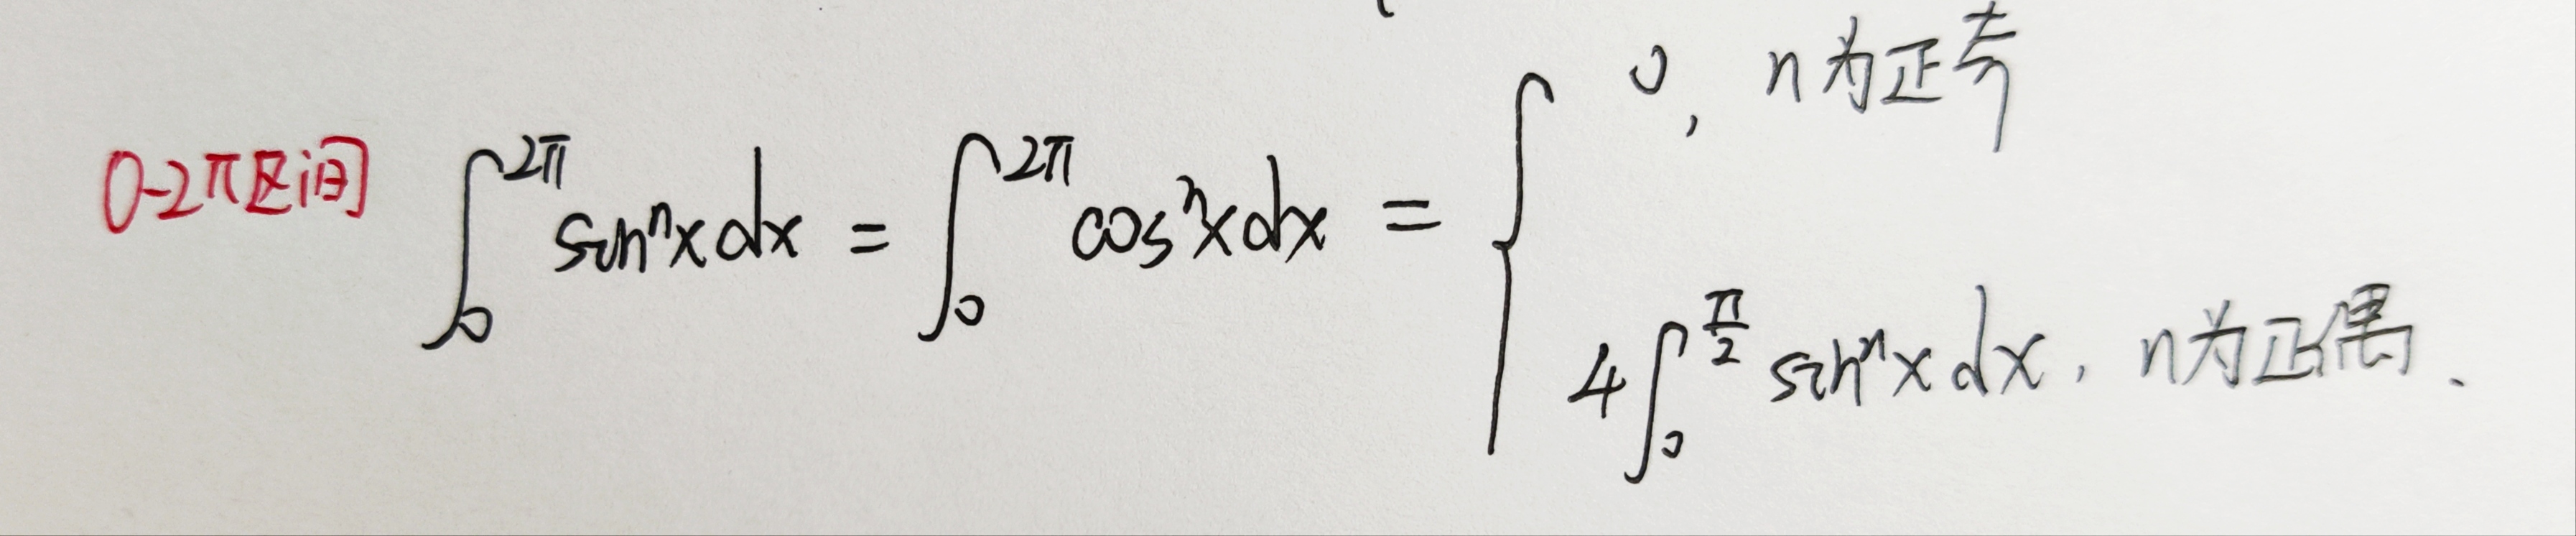 0-2π区间 ∫₀^{2π} sinⁿx dx = ∫₀^{2π} cosⁿx dx = { 0, n为正奇
4∫₀^{π/2} sinⁿx dx, n为正偶.